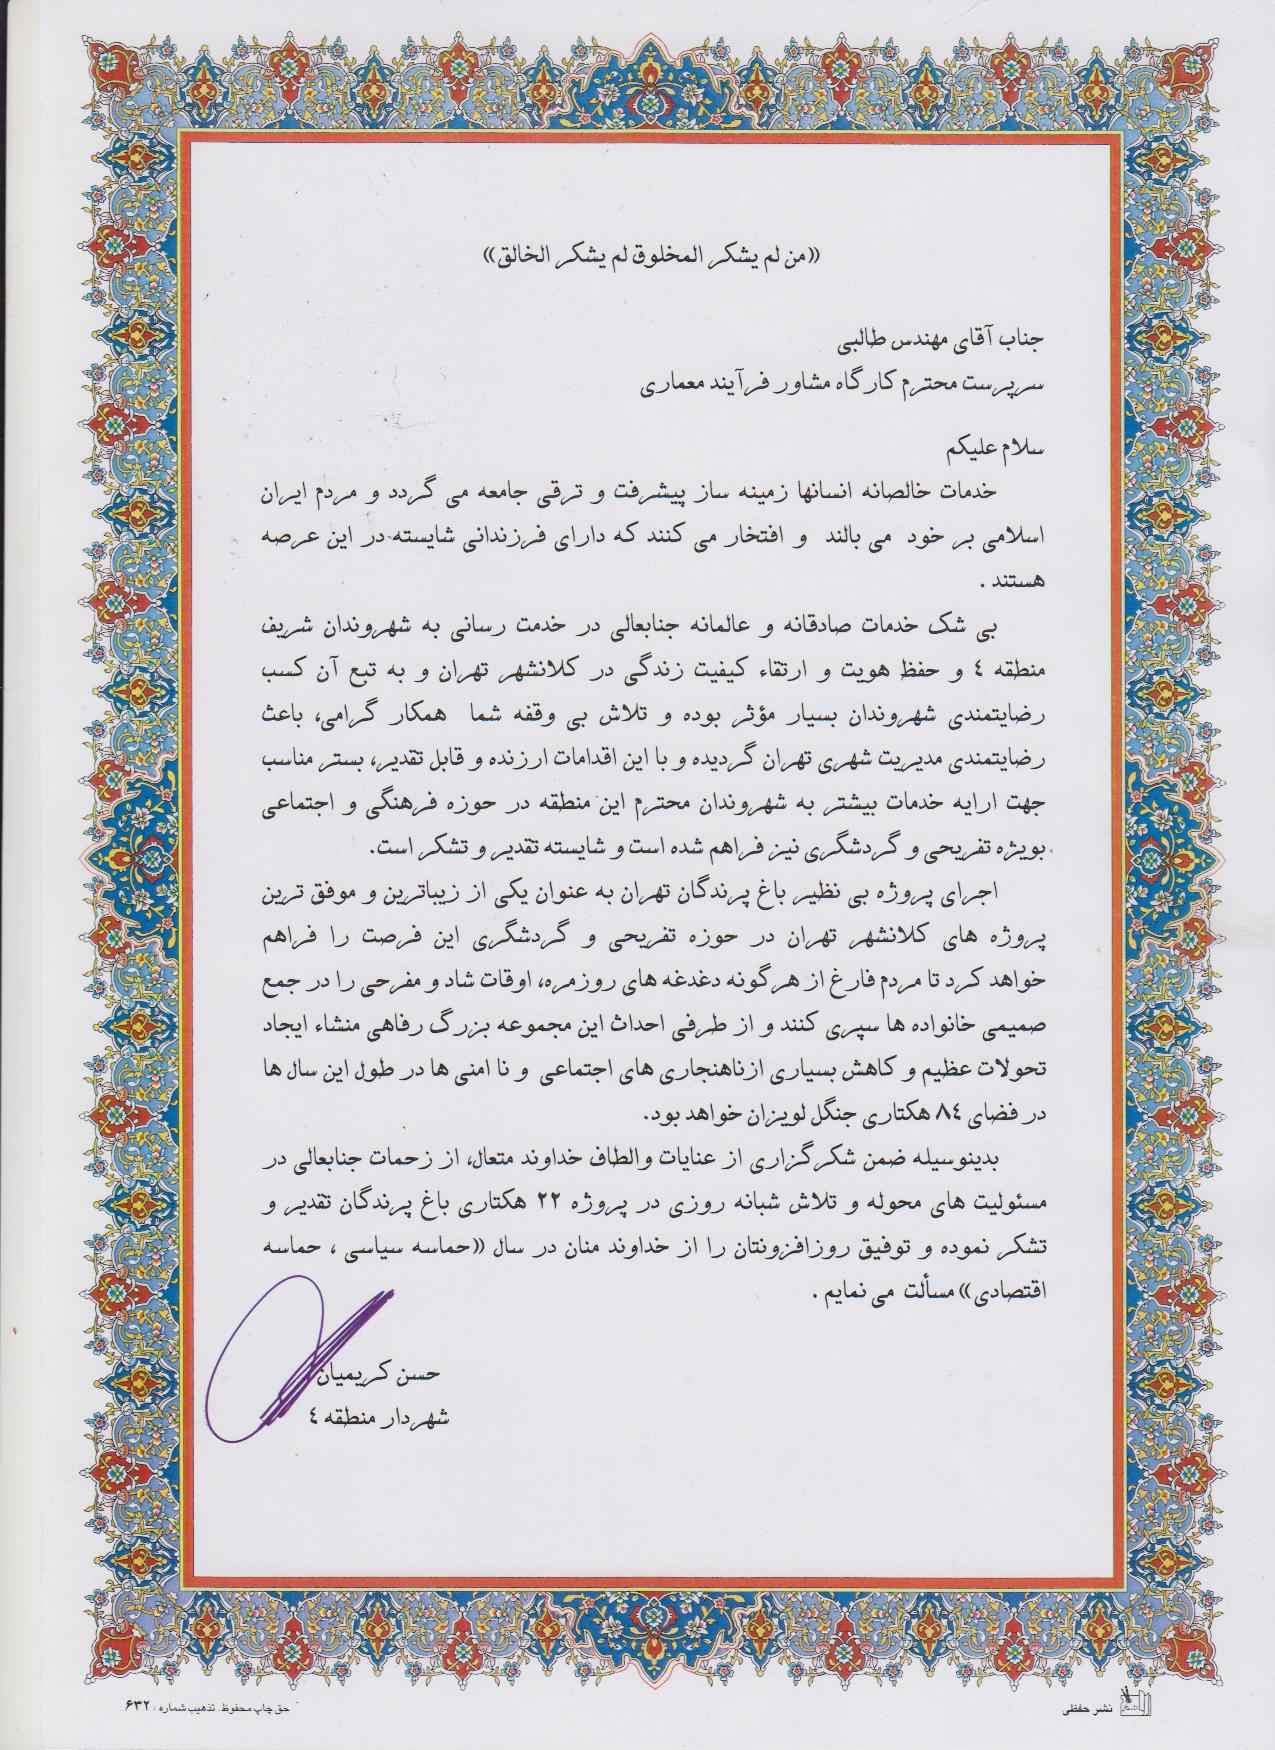 «من لم يشكر المخلوق لم يشكر الخالق»
جناب آقای مهندس طالبی
سرپرست محترم کارگاه مشاور فرآیند معماری
سلام علیکم
خدمات خالصانه انسانها زمینه ساز پیشرفت و ترقی جامعه می گردد و مردم ایران
اسلامی بر خود می بالند و افتخار می کنند که دارای فرزندانی شایسته در این عرصه
هستند .
بی شک خدمات صادقانه و عالمانه جنابعالی در خدمت رسانی به شهروندان شریف
منطقه ٤ و حفظ هویت و ارتقاء کیفیت زندگی در کلانشهر تهران و به تبع آن کسب
رضایتمندی شهروندان بسیار مؤثر بوده و تلاش بی وقفه شما همکار گرامی، باعث
رضایتمندی مدیریت شهری تهران گردیده و با این اقدامات ارزنده و قابل تقدیر، بستر مناسب
جهت ارایه خدمات بیشتر به شهروندان محترم این منطقه در حوزه فرهنگی و اجتماعی
بویژه تفریحی و گردشگری نیز فراهم شده است و شایسته تقدیر و تشکر است.
اجرای پروژه بی نظیر باغ پرندگان تهران به عنوان یکی از زیباترین و موفق ترین
پروژه های کلانشهر تهران در حوزه تفریحی و گردشگری این فرصت را فراهم
خواهد کرد تا مردم فارغ از هرگونه دغدغه های روزمره، اوقات شاد و مفرحی را در جمع
صمیمی خانواده ها سپری کنند و از طرفی احداث این مجموعه بزرگ رفاهی منشاء ایجاد
تحولات عظیم و کاهش بسیاری ازناهنجاری های اجتماعی و نا امنی ها در طول این سال ها
در فضای ٨٤ هکتاری جنگل لویزان خواهد بود.
بدینوسیله ضمن شکرگزاری از عنایات والطاف خداوند متعال، از زحمات جنابعالی در
مسئولیت های محوله و تلاش شبانه روزی در پروژه ٢٢ هکتاری باغ پرندگان تقدیر و
تشکر نموده و توفیق روزافزونتان را از خداوند منان در سال «حماسه سیاسی ، حماسه
اقتصادی» مسألت می نمایم .
حسن کریمیان
شهردار منطقه ٤
نشر حفظی
حق چاپ محفوظ. تذهیب شماره : ۶۳۲